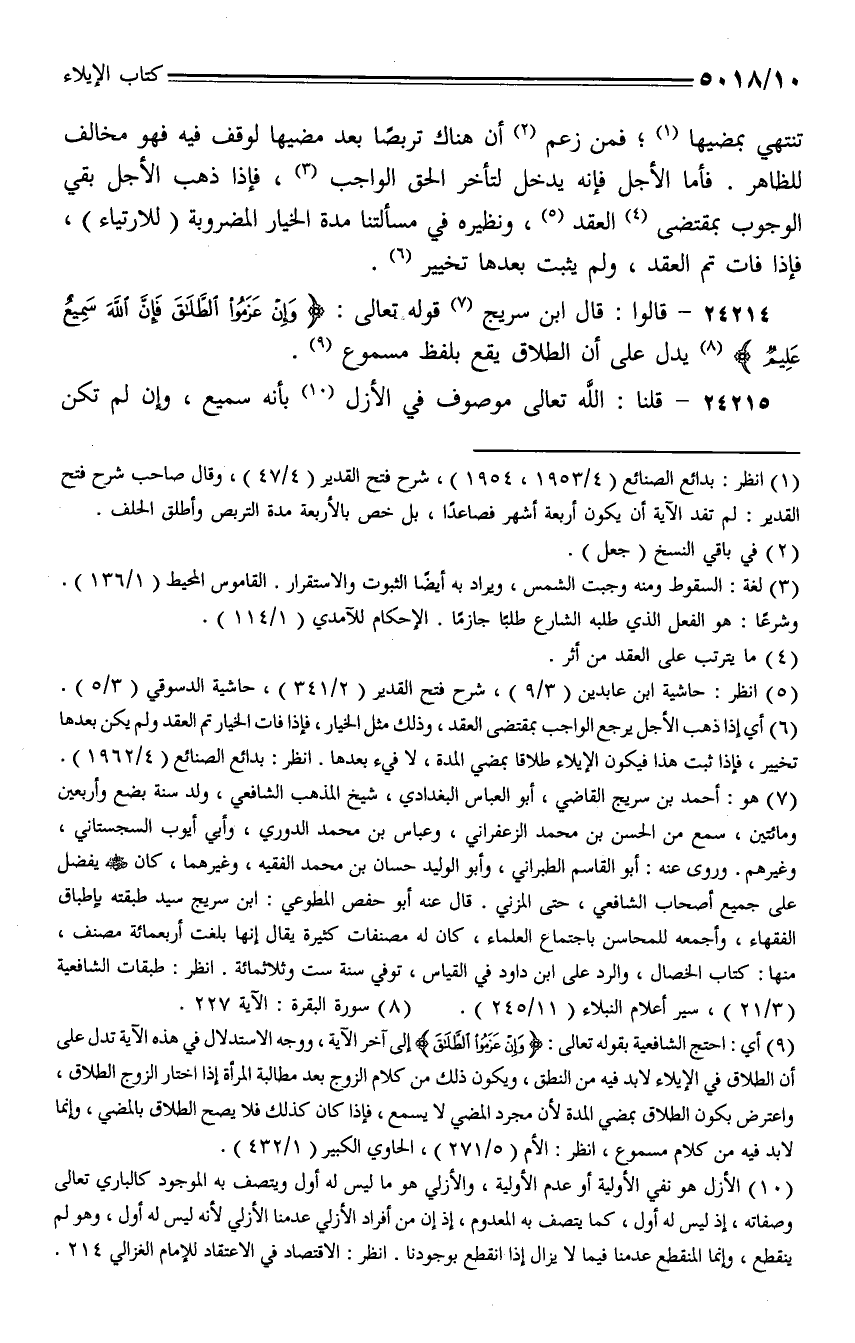 ٥٠١٨/١٠ كتاب الإيلاء
تنتهي بمضيها (١) ؛ فمن زعم (٢) أن هناك تربصًا بعد مضيها لوقف فيه فهو مخالف
للظاهر . فأما الأجل فإنه يدخل لتأخر الحق الواجب (٣) ، فإذا ذهب الأجل بقي
الوجوب بمقتضى (٤) العقد (٥) ، ونظيره في مسألتنا مدة الخيار المضروبة ( للارتياء ) ،
فإذا فات تم العقد ، ولم يثبت بعدها تخيير (٦) .
٢٤٢١٤ - قالوا : قال ابن سريج (٧) قوله تعالى : ﴿ وَإِنْ عَزَمُوا۟ ٱلطَّلَـٰقَ فَإِنَّ ٱللَّهَ سَمِيعٌ
عَلِيمٌ ﴾ (٨) يدل على أن الطلاق يقع بلفظ مسموع (٩) .
٢٤٢١٥ - قلنا : اللَّه تعالى موصوف في الأزل (١٠) بأنه سميع ، وإن لم تكن
(١) انظر : بدائع الصنائع ( ١٩٥٣/٤ ، ١٩٥٤ ) ، شرح فتح القدير ( ٤٧/٤ ) ، وقال صاحب شرح فتح
القدير : لم تفد الآية أن يكون أربعة أشهر فصاعدًا ، بل خص بالأربعة مدة التربص وأطلق الحلف .
(٢) في باقي النسخ ( جعل ) .
(٣) لغة : السقوط ومنه وجبت الشمس ، ويراد به أيضًا الثبوت والاستقرار . القاموس المحيط ( ١٣٦/١ ) .
وشرعًا : هو الفعل الذي طلبه الشارع طلبًا جازمًا . الإحكام للآمدي ( ١١٤/١ ) .
(٤) ما يترتب على العقد من أثر .
(٥) انظر : حاشية ابن عابدين ( ٩/٣ ) ، شرح فتح القدير ( ٣٤١/٢ ) ، حاشية الدسوقي ( ٥/٣ ) .
(٦) أي إذا ذهب الأجل يرجع الواجب بمقتضى العقد ، وذلك مثل الخيار ، فإذا فات الخيار تم العقد ولم يكن بعدها
تخيير ، فإذا ثبت هذا فيكون الإيلاء طلاقا بمضي المدة ، لا فيء بعدها . انظر : بدائع الصنائع ( ١٩٦٢/٤ ) .
(٧) هو : أحمد بن سريج القاضي ، أبو العباس البغدادي ، شيخ المذهب الشافعي ، ولد سنة بضع وأربعين
ومائتين ، سمع من الحسن بن محمد الزعفراني ، وعباس بن محمد الدوري ، وأبي أيوب السجستاني ،
وغيرهم . وروى عنه : أبو القاسم الطبراني ، وأبو الوليد حسان بن محمد الفقيه ، وغيرهما ، كان يفضل
على جميع أصحاب الشافعي ، حتى المزني . قال عنه أبو حفص المطوعي : ابن سريج سيد طبقته بإطباق
الفقهاء ، وأجمعه للمحاسن باجتماع العلماء ، كان له مصنفات كثيرة يقال إنها بلغت أربعمائة مصنف ،
منها : كتاب الخصال ، والرد على ابن داود في القياس ، توفي سنة ست وثلاثمائة . انظر : طبقات الشافعية
( ٢١/٣ ) ، سير أعلام النبلاء ( ٢٤٥/١١ ) . (٨) سورة البقرة : الآية ٢٢٧ .
(٩) أي : احتج الشافعية بقوله تعالى : ﴿ وَإِنْ عَزَمُوا۟ ٱلطَّلَـٰقَ ﴾ إلى آخر الآية ، ووجه الاستدلال في هذه الآية تدل على
أن الطلاق في الإيلاء لابد فيه من النطق ، ويكون ذلك من كلام الزوج بعد مطالبة المرأة إذا اختار الزوج الطلاق ،
واعترض بكون الطلاق بمضي المدة لأن مجرد المضي لا يسمع ، فإذا كان كذلك فلا يصح الطلاق بالمضي ، وإنما
لابد فيه من كلام مسموع ، انظر : الأم ( ٢٧١/٥ ) ، الحاوي الكبير ( ٤٣٢/١ ) .
(١٠) الأزل هو نفي الأولية أو عدم الأولية ، والأزلي هو ما ليس له أول ويتصف به الموجود كالباري تعالى
وصفاته ، إذ ليس له أول ، كما يتصف به المعدوم ، إذ إن من أفراد الأزلي عدمنا الأزلي لأنه ليس له أول ، وهو لم
ينقطع ، وإنما المنقطع عدمنا فيما لا يزال إذا انقطع بوجودنا . انظر : الاقتصاد في الاعتقاد للإمام الغزالي ٢١٤ .